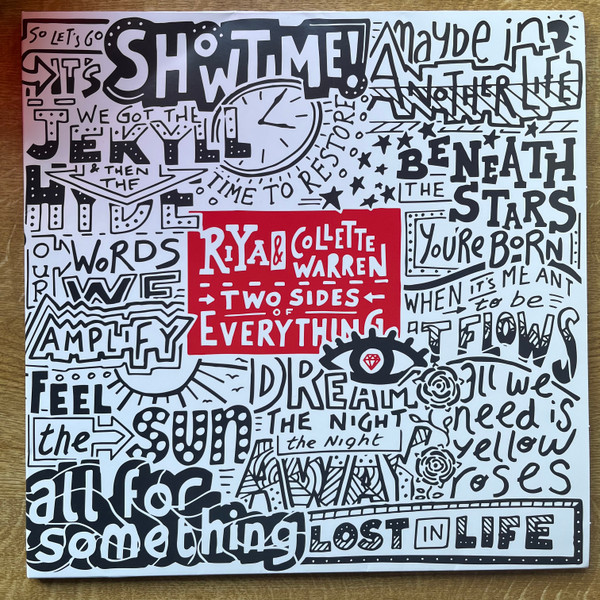 SO LET'S GO
IT'S SHOWTIME!
WE GOT THE
JEKYLL
& THEN
THE
HYDE
TIME TO RESTORE
maybe in
ANOTHER LIFE
BENEATH
THE STARS
YOU'RE BORN
OUR WORDS
WE
AMPLIFY
RIYA & COLLETTE
WARREN
TWO SIDES
OF
EVERYTHING
WHEN IT'S MEANT
to be
IT FLOWS
FEEL
the SUN
DREAM
THE NIGHT
the Night
AWAY
all we
need is
yellow
roses
all for
something
LOST IN LIFE